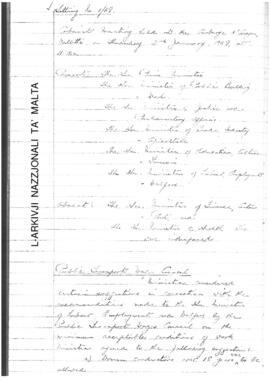 Sitting No 1/69.
Cabinet Meeting held at the Auberge
Valletta on Thursday 2nd January, 1969, at
Present: The Hon. Prime Minister
The Hon. Minister of Public Building
Works
The Hon. Minister of Justice and
Parliamentary Affairs
The Hon. Minister of Trade Industry
The Hon. Minister of Education, Culture
Tourism
The Hon. Minister of Labour, Employment
Welfare
Absent: The Hon. Minister of Finance, Customs
Port, and
The Hon. Minister of Health
were indisposed
L-ARKIVJI NAZZJONALI TA' MALTA
Public Transport Council
Ministers considered
certain suggestions in connection with the
recommendations made to the Hon. Minister
of Labour Employment and Welfare by the
Public Transport Wages Council on the
minimum acceptable conditions of work.
Ministers agreed to the following suggestions:
a) Women conductors over 18 years to be
allowed